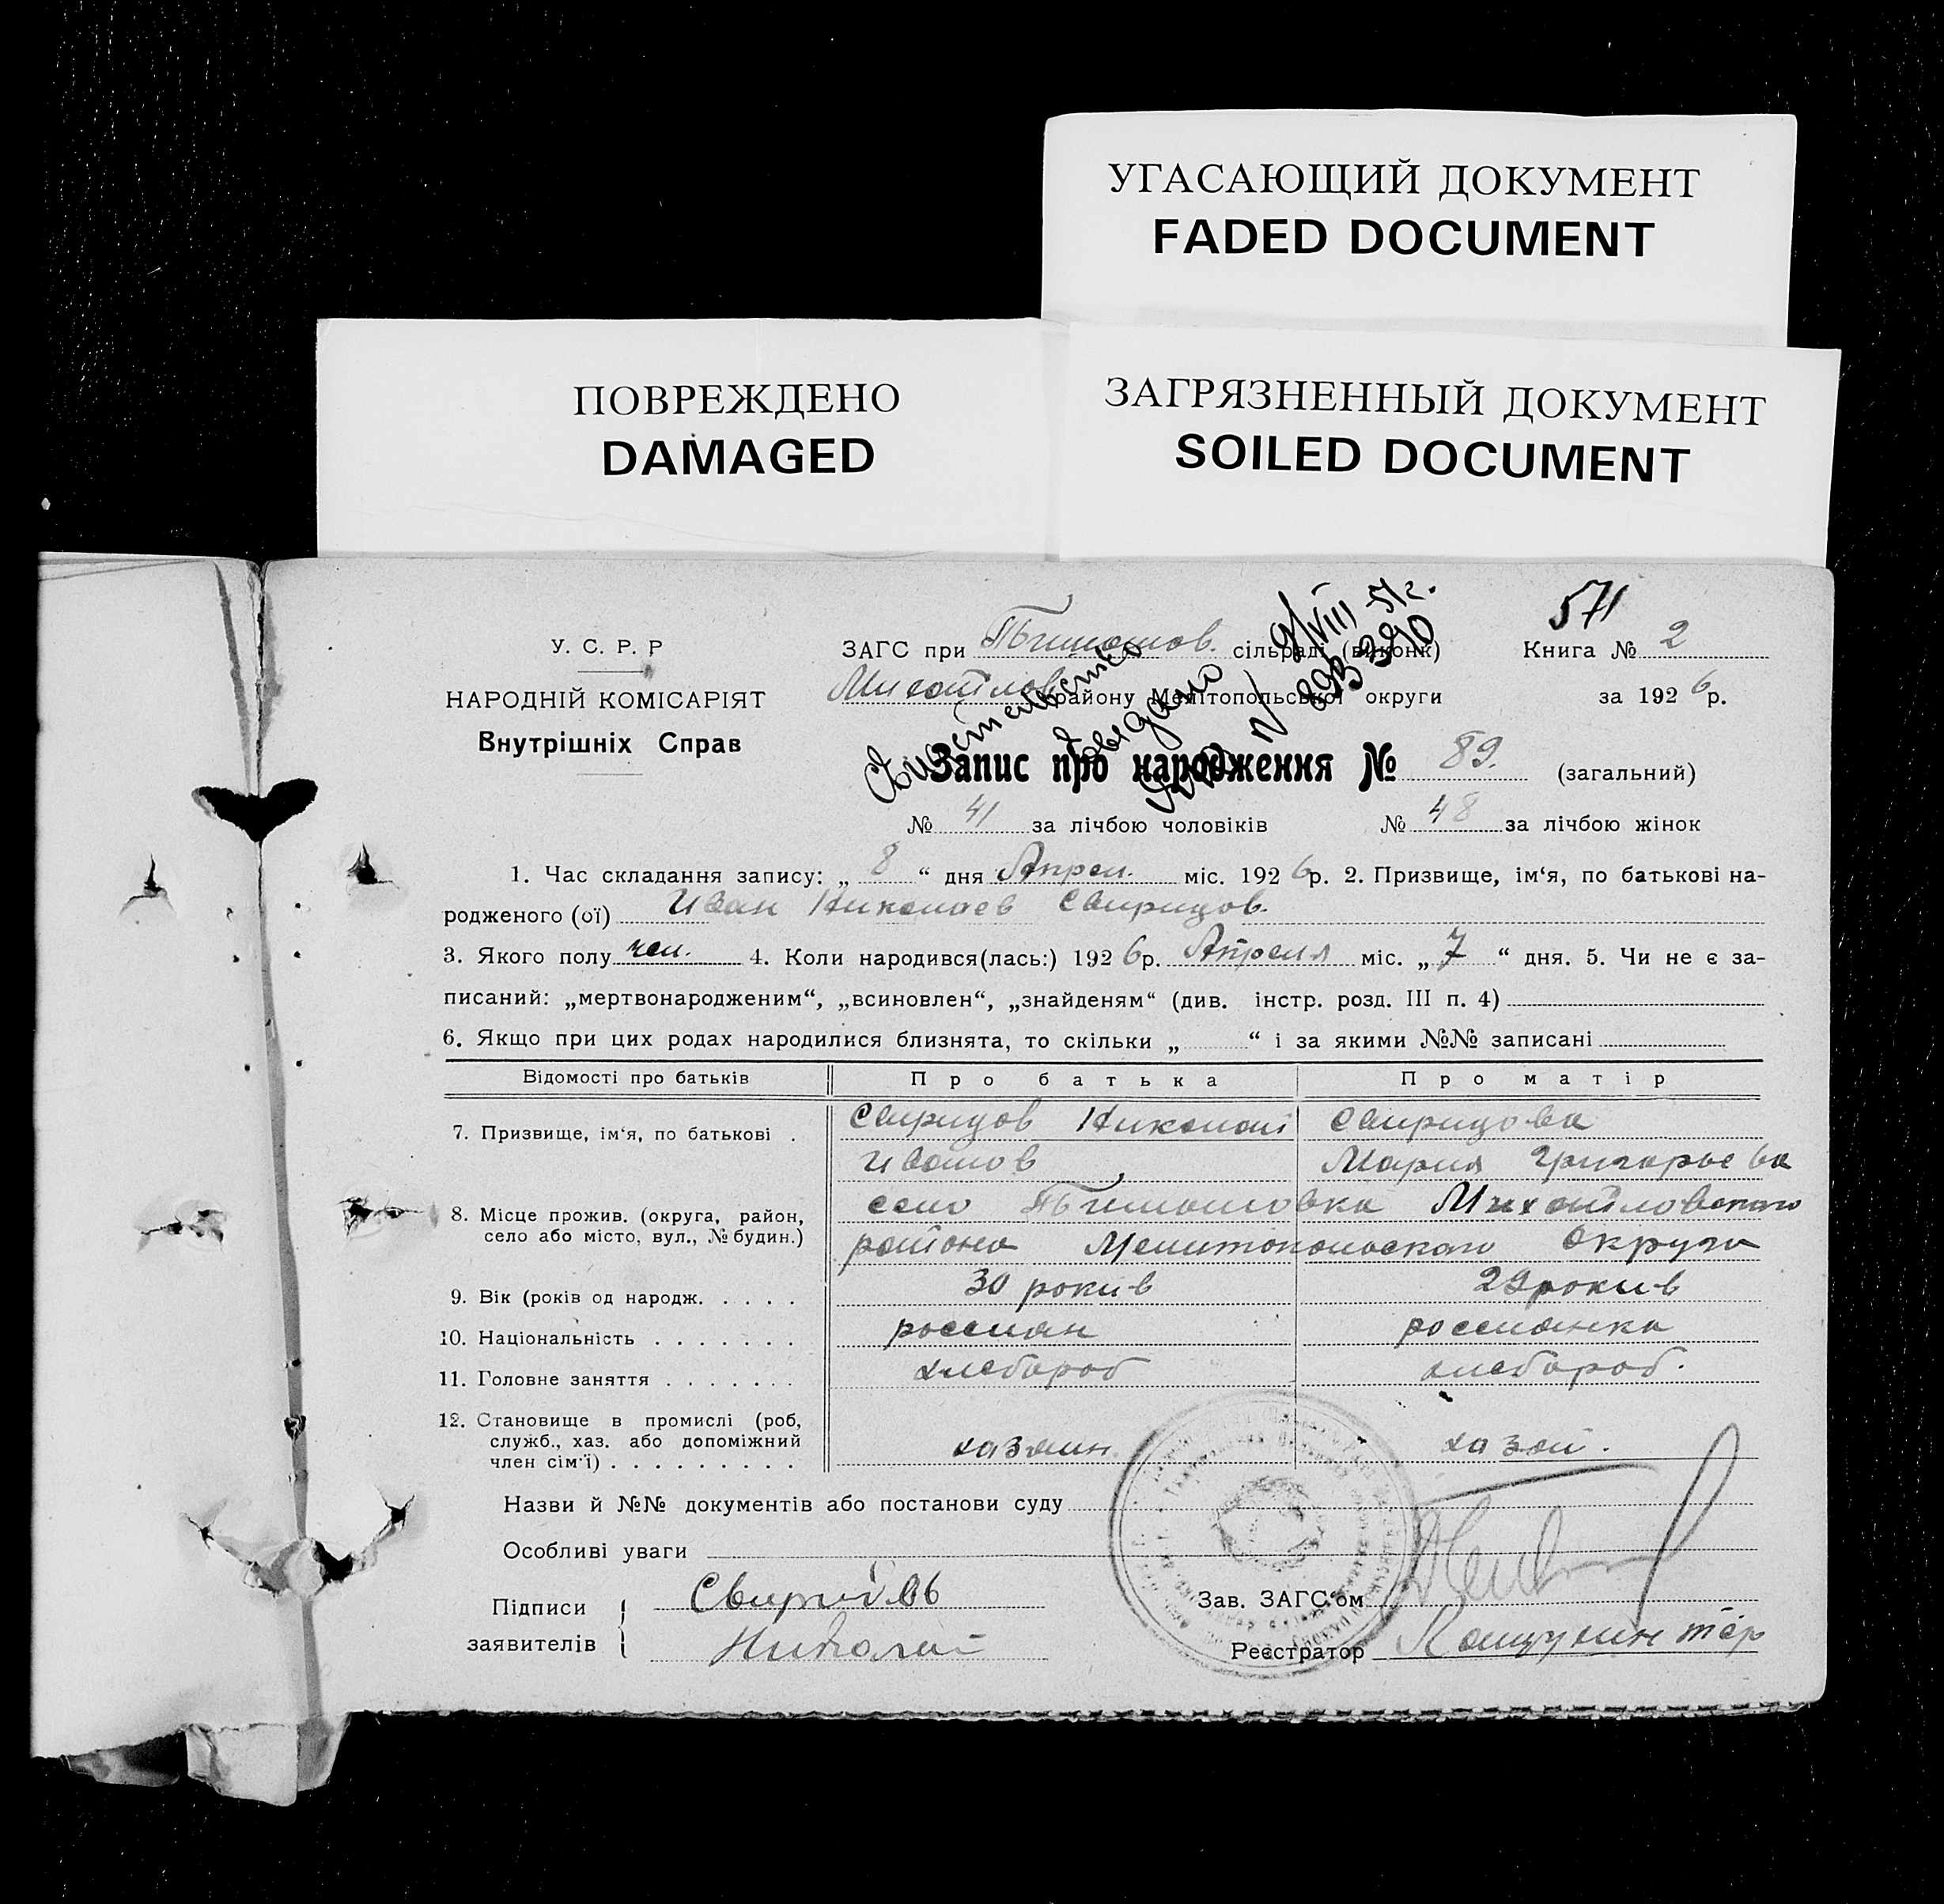 УГАСАЮЩИЙ ДОКУМЕНТ
FADED DOCUMENT
ПОВРЕЖДЕНО
DAMAGED
ЗАГРЯЗНЕННЫЙ ДОКУМЕНТ
SOILED DOCUMENT
571
У. С. Р. Р
НАРОДНІЙ КОМІСАРІЯТ
Внутрішніх Справ
ЗАГС при Тимошов. сільраді (виконк)
Книга № 2
Михайлов району Мелітопольської округи
за 1926 р.
Свидетельство
выдано 9/VIII-51г.
Запис про народження № 89. (загальний)
№ 41 за лічбою чоловіків № 48 за лічбою жінок
1. Час складання запису: „ 8 “ дня Апрел. міс. 1926 р. 2. Призвище, ім‘я, по батькові на-
родженого (ої) Иван Николаев Свиридов.
3. Якого полу чел. 4. Коли народився(лась:) 1926 р. Апреля міс. „ 7 “ дня. 5. Чи не є за-
писаний: „мертвонародженим“, „всиновлен“, „знайденям“ (див. інстр. розд. III п. 4)
6. Якщо при цих родах народилися близнята, то скільки „ “ і за якими №№ записані
Відомості про батьків
Про батька
Про матір
7. Призвище, ім‘я, по батькові .
Свиридов Николай
Иванов
Свиридова
Мария Григорьева
8. Місце прожив. (округа, район,
село або місто, вул., № будин.)
село Тимошовка Михайловского
района Мелитопольского Округа
9. Вік (років од народж. . . . .
30 рокив
29 рокив
10. Національність . . . . . . .
россиян
россиянка
11. Головне заняття . . . . . . .
хлебороб
хлебороб.
12. Становище в промислі (роб,
служб., хаз. або допоміжний
член сім‘ї) . . . . . . . . .
хазяин.
хазяй.
Назви й №№ документів або постанови суду
Особливі уваги
Підписи
заявителів
Николай
Зав. ЗАГС‘ом
Реєстратор